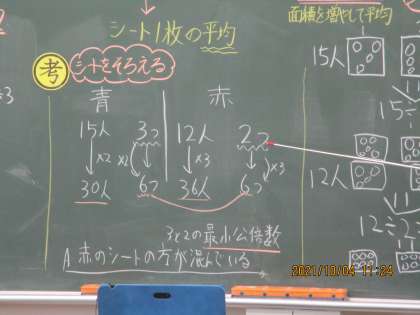 シート1枚の平均
面積を増やして平均
考
シートをそろえる
青 赤
15人 3つ 12人 2つ
×2 ×2 ×3 ×3
30人 6つ 36人 6つ
3と2の最小公倍数
A 赤のシートの方が混んでいる
15人
15÷
12人
12÷2
2021/10/04 11:24